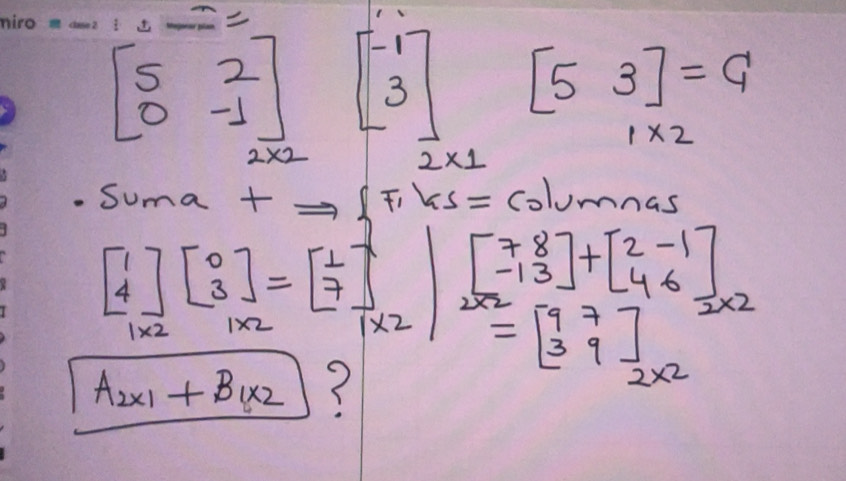 miro clase 2
=
[5 2
0 -1] 2x2
[-1
3] 2x1
[5 3] = G
1x2
• Suma + ⇒ { Filas = columnas
[1
4] 1x2 [0
3] 1x2 = [1
7] 1x2
[7 8
-1 3] 2x2 + [2 -1
4 6] 2x2
= [9 7
3 9] 2x2
A2x1 + B1x2 ?